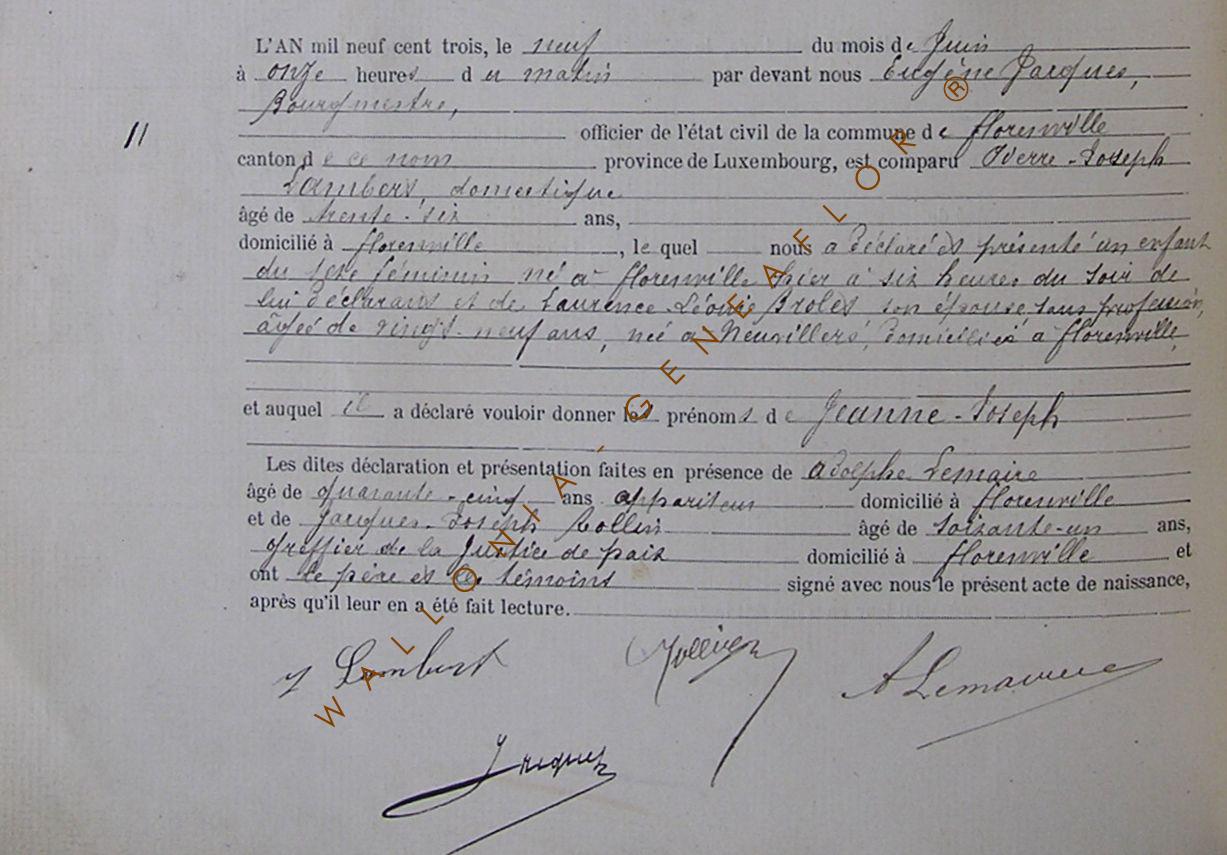 L'AN mil neuf cent trois, le neuf du mois de Juin
à onze heures du matin par devant nous Eugène Jacques,
Bourgmestre,
11 officier de l'état civil de la commune de florenville
canton de ce nom province de Luxembourg, est comparu Pierre-Joseph
Lambert, domestique
âgé de trente-six ans,
domicilié à florenville, le quel nous a déclaré et présenté un enfant
du sexe féminin né à florenville hier à six heures du soir de
lui déclarant et de Laurence Léonie son épouse sans profession,
âgée de vingt-neuf ans, née à Neuvillers, domiciliés à florenville,
et auquel il a déclaré vouloir donner les prénoms de Jeanne-Joseph
Les dites déclaration et présentation faites en présence de Adolphe Lemaire
âgé de quarante-cinq ans appariteur domicilié à florenville
et de Jacques-Joseph Collin âgé de soixante-un ans,
greffier de la Justice de paix domicilié à florenville et
ont le père et les témoins signé avec nous le présent acte de naissance,
après qu'il leur en a été fait lecture.
J Lambert
A Lemaire
Jacques
WALLONIA-GENEAFLOR®